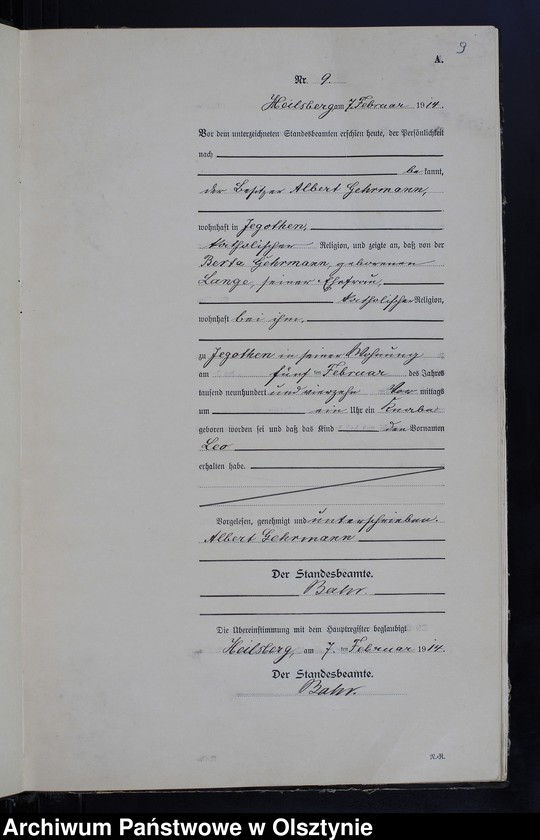 9
A.
Nr. 9.
Heilsberg am 7. Februar 1914.
Vor dem unterzeichneten Standesbeamten erschien heute, der Persönlichkeit
nach
be kannt,
der Besitzer Albert Gehrmann,
wohnhaft in Jegothen,
katholischer Religion, und zeigte an, daß von der
Berta Gehrmann, geborenen
Lange, seiner Ehefrau,
katholischer Religion,
wohnhaft bei ihm,
zu Jegothen in seiner Wohnung
am fünf ten Februar des Jahres
tausend neunhundert und vierzehn Vor mittags
um ein Uhr ein Knabe
geboren worden sei und daß das Kind den Vornamen
Leo
erhalten habe.
Vorgelesen, genehmigt und unterschrieben.
Albert Gehrmann
Der Standesbeamte.
Bahr.
Die Übereinstimmung mit dem Hauptregister beglaubigt
Heilsberg, am 7. ten Februar 1914.
Der Standesbeamte.
Bahr.
R.-R.
Archiwum Państwowe w Olsztynie